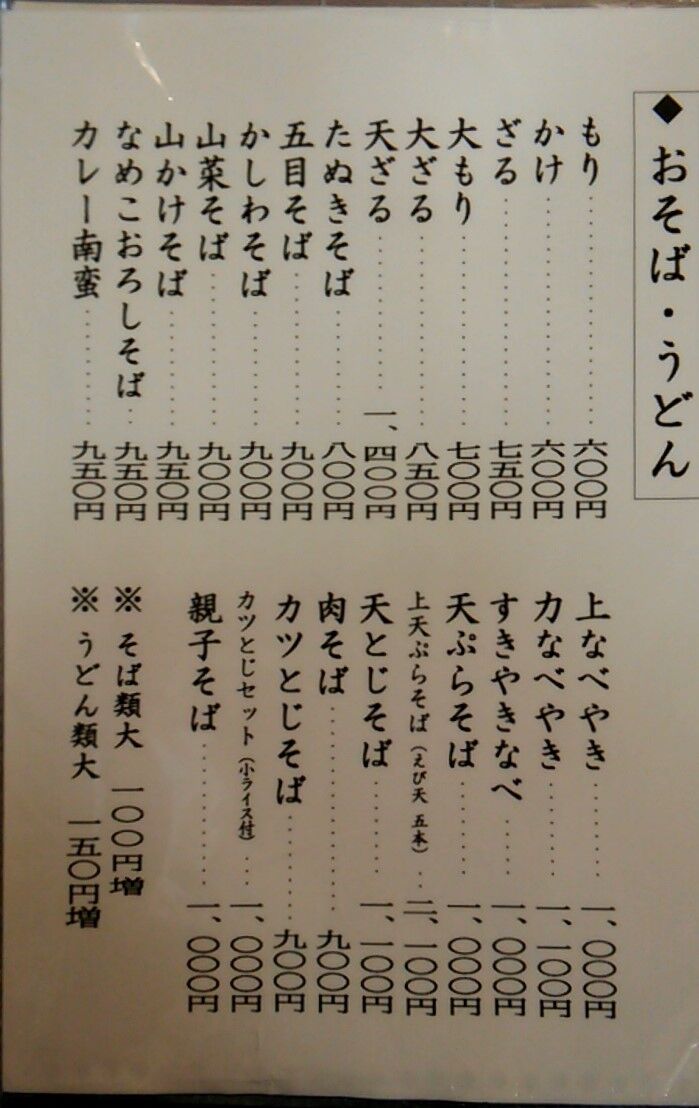 ◆おそば・うどん
もり……六〇〇円
かけ……六〇〇円
ざる……七五〇円
大もり……七〇〇円
大ざる……八五〇円
天ざる……一、四〇〇円
たぬきそば……八〇〇円
五目そば……九〇〇円
かしわそば……九〇〇円
山菜そば……九〇〇円
山かけそば……九五〇円
なめこおろしそば…九五〇円
カレー南蛮……九五〇円
上なべやき……一、〇〇〇円
力なべやき……一、一〇〇円
すきやきなべ……一、〇〇〇円
天ぷらそば……一、〇〇〇円
上天ぷらそば（えび天 五本）…二、一〇〇円
天とじそば……一、一〇〇円
肉そば……九〇〇円
カツとじそば……九〇〇円
カツとじセット（小ライス付）…一、〇〇〇円
親子そば……一、〇〇〇円
※ そば類大 一〇〇円増
※ うどん類大 一五〇円増